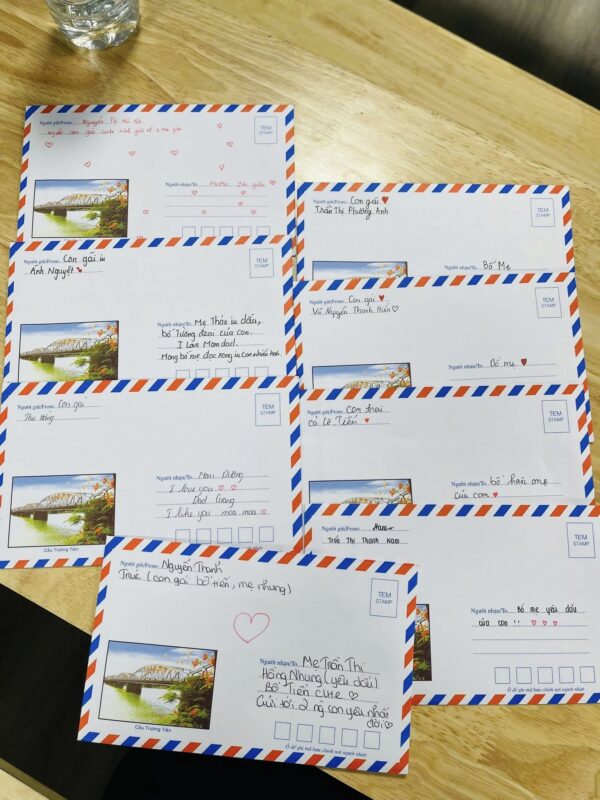 Người gửi/From: Nguyễn Thị Hà
người con gái cute xinh gái
TEM
STAMP
Người nhận/To: MaMa yêu
Người gửi/From: Con gái iu
Ánh Nguyệt
TEM
STAMP
Người nhận/To: Mẹ Thảo iu dấu,
bố Tường đzou của con.
I Love Mom dad.
Mong bố mẹ đọc xong iu con nhiều hơn.
Người gửi/From: Con gái
Thu
TEM
STAMP
Người nhận/To: Mom
I love you
Dad Giang
I like you moa moa
Cầu Trường Tiền
Người gửi/From: Nguyễn Thanh
Trúc (con gái bố tiến, mẹ nhung)
TEM
STAMP
Người nhận/To: Mẹ Trần Thị
Hồng Nhung (yêu dấu)
Bố Tiến cute
Gửi tới 2 ng con yêu nhất
đời
Cầu Trường Tiền
Ô để ghi mã bưu chính nơi người nhận
Người gửi/From: Con gái
Trần Thị Phương Anh
TEM
STAMP
Người nhận/To: Bố Mẹ
Người gửi/From: Con gái
Vũ Nguyễn Thanh Hiền
TEM
STAMP
Người nhận/To: Bố mẹ
Người gửi/From: Con trai
cả Lê Tiến
TEM
STAMP
Người nhận/To: bố mẹ
của con
Người gửi/From:
Trần Thị Thanh Nam
TEM
STAMP
Người nhận/To: Bố mẹ yêu dấu
của con !!
Ô để ghi mã bưu chính nơi người nhận